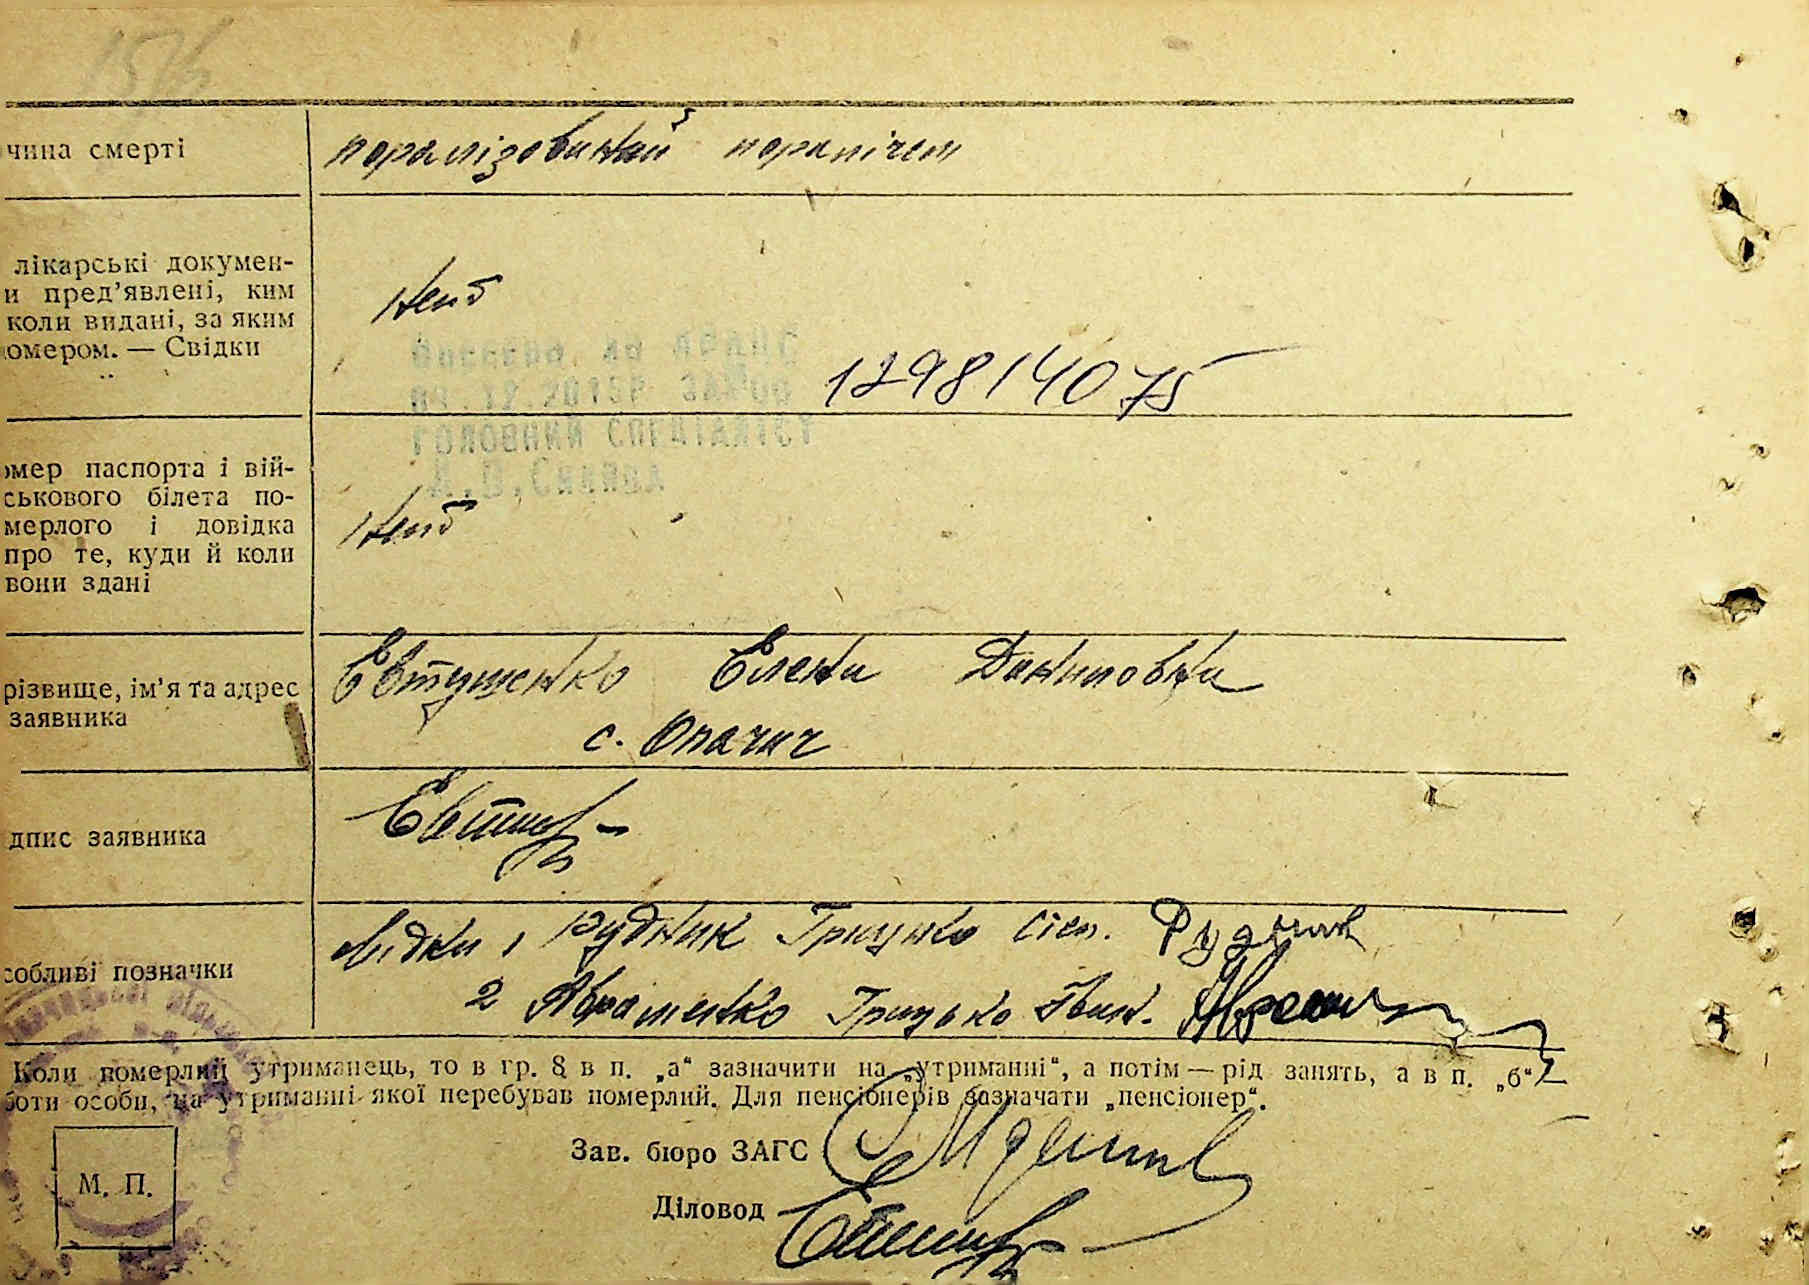 чина смерті
паралізований паралічем
лікарські докумен-
и пред’явлені, ким
коли видані, за яким
омером. — Свідки
нет
129814075
ГОЛОВНИЙ СПЕЦІАЛІСТ
омер паспорта і вій-
ськового білета по-
мерлого і довідка
про те, куди й коли
вони здані
нет
різвище, ім’я та адрес
заявника
Евтушенко Елена Даниловна
с. Опачич
дпис заявника
собливі позначки
свідки 1 Рудник Грицько Сіл. Рудник
2 Авраменко Грицько Іван.
Коли померлий утриманець, то в гр. 8 в п. „а“ зазначити на „утриманні“, а потім — рід занять, а в п. „б“
боти особи, на утриманні якої перебував померлий. Для пенсіонерів зазначати „пенсіонер“.
Зав. бюро ЗАГС
М. П.
Діловод